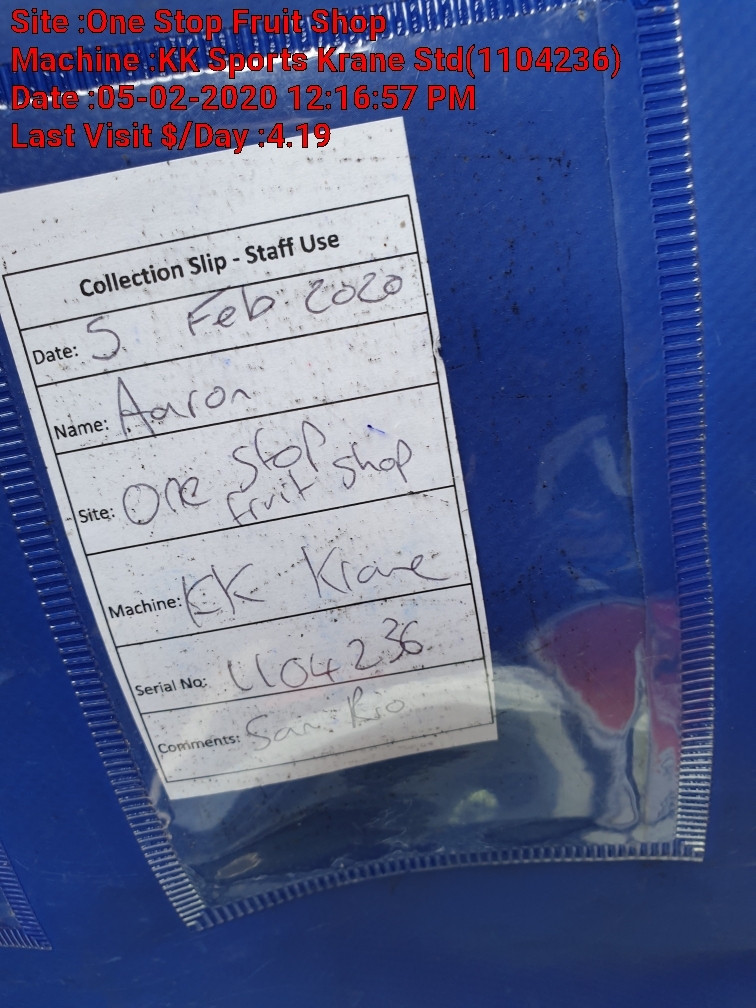 Site :One Stop Fruit Shop
Machine :KK Sports Krane Std(1104236)
Date :05-02-2020 12:16:57 PM
Last Visit $/Day :4.19
Collection Slip - Staff Use
Date: 5 Feb 2020
Name: Aaron
Site: One Stop
Fruit Shop
Machine: KK Krane
Serial No: 1104236
Comments: San Rio